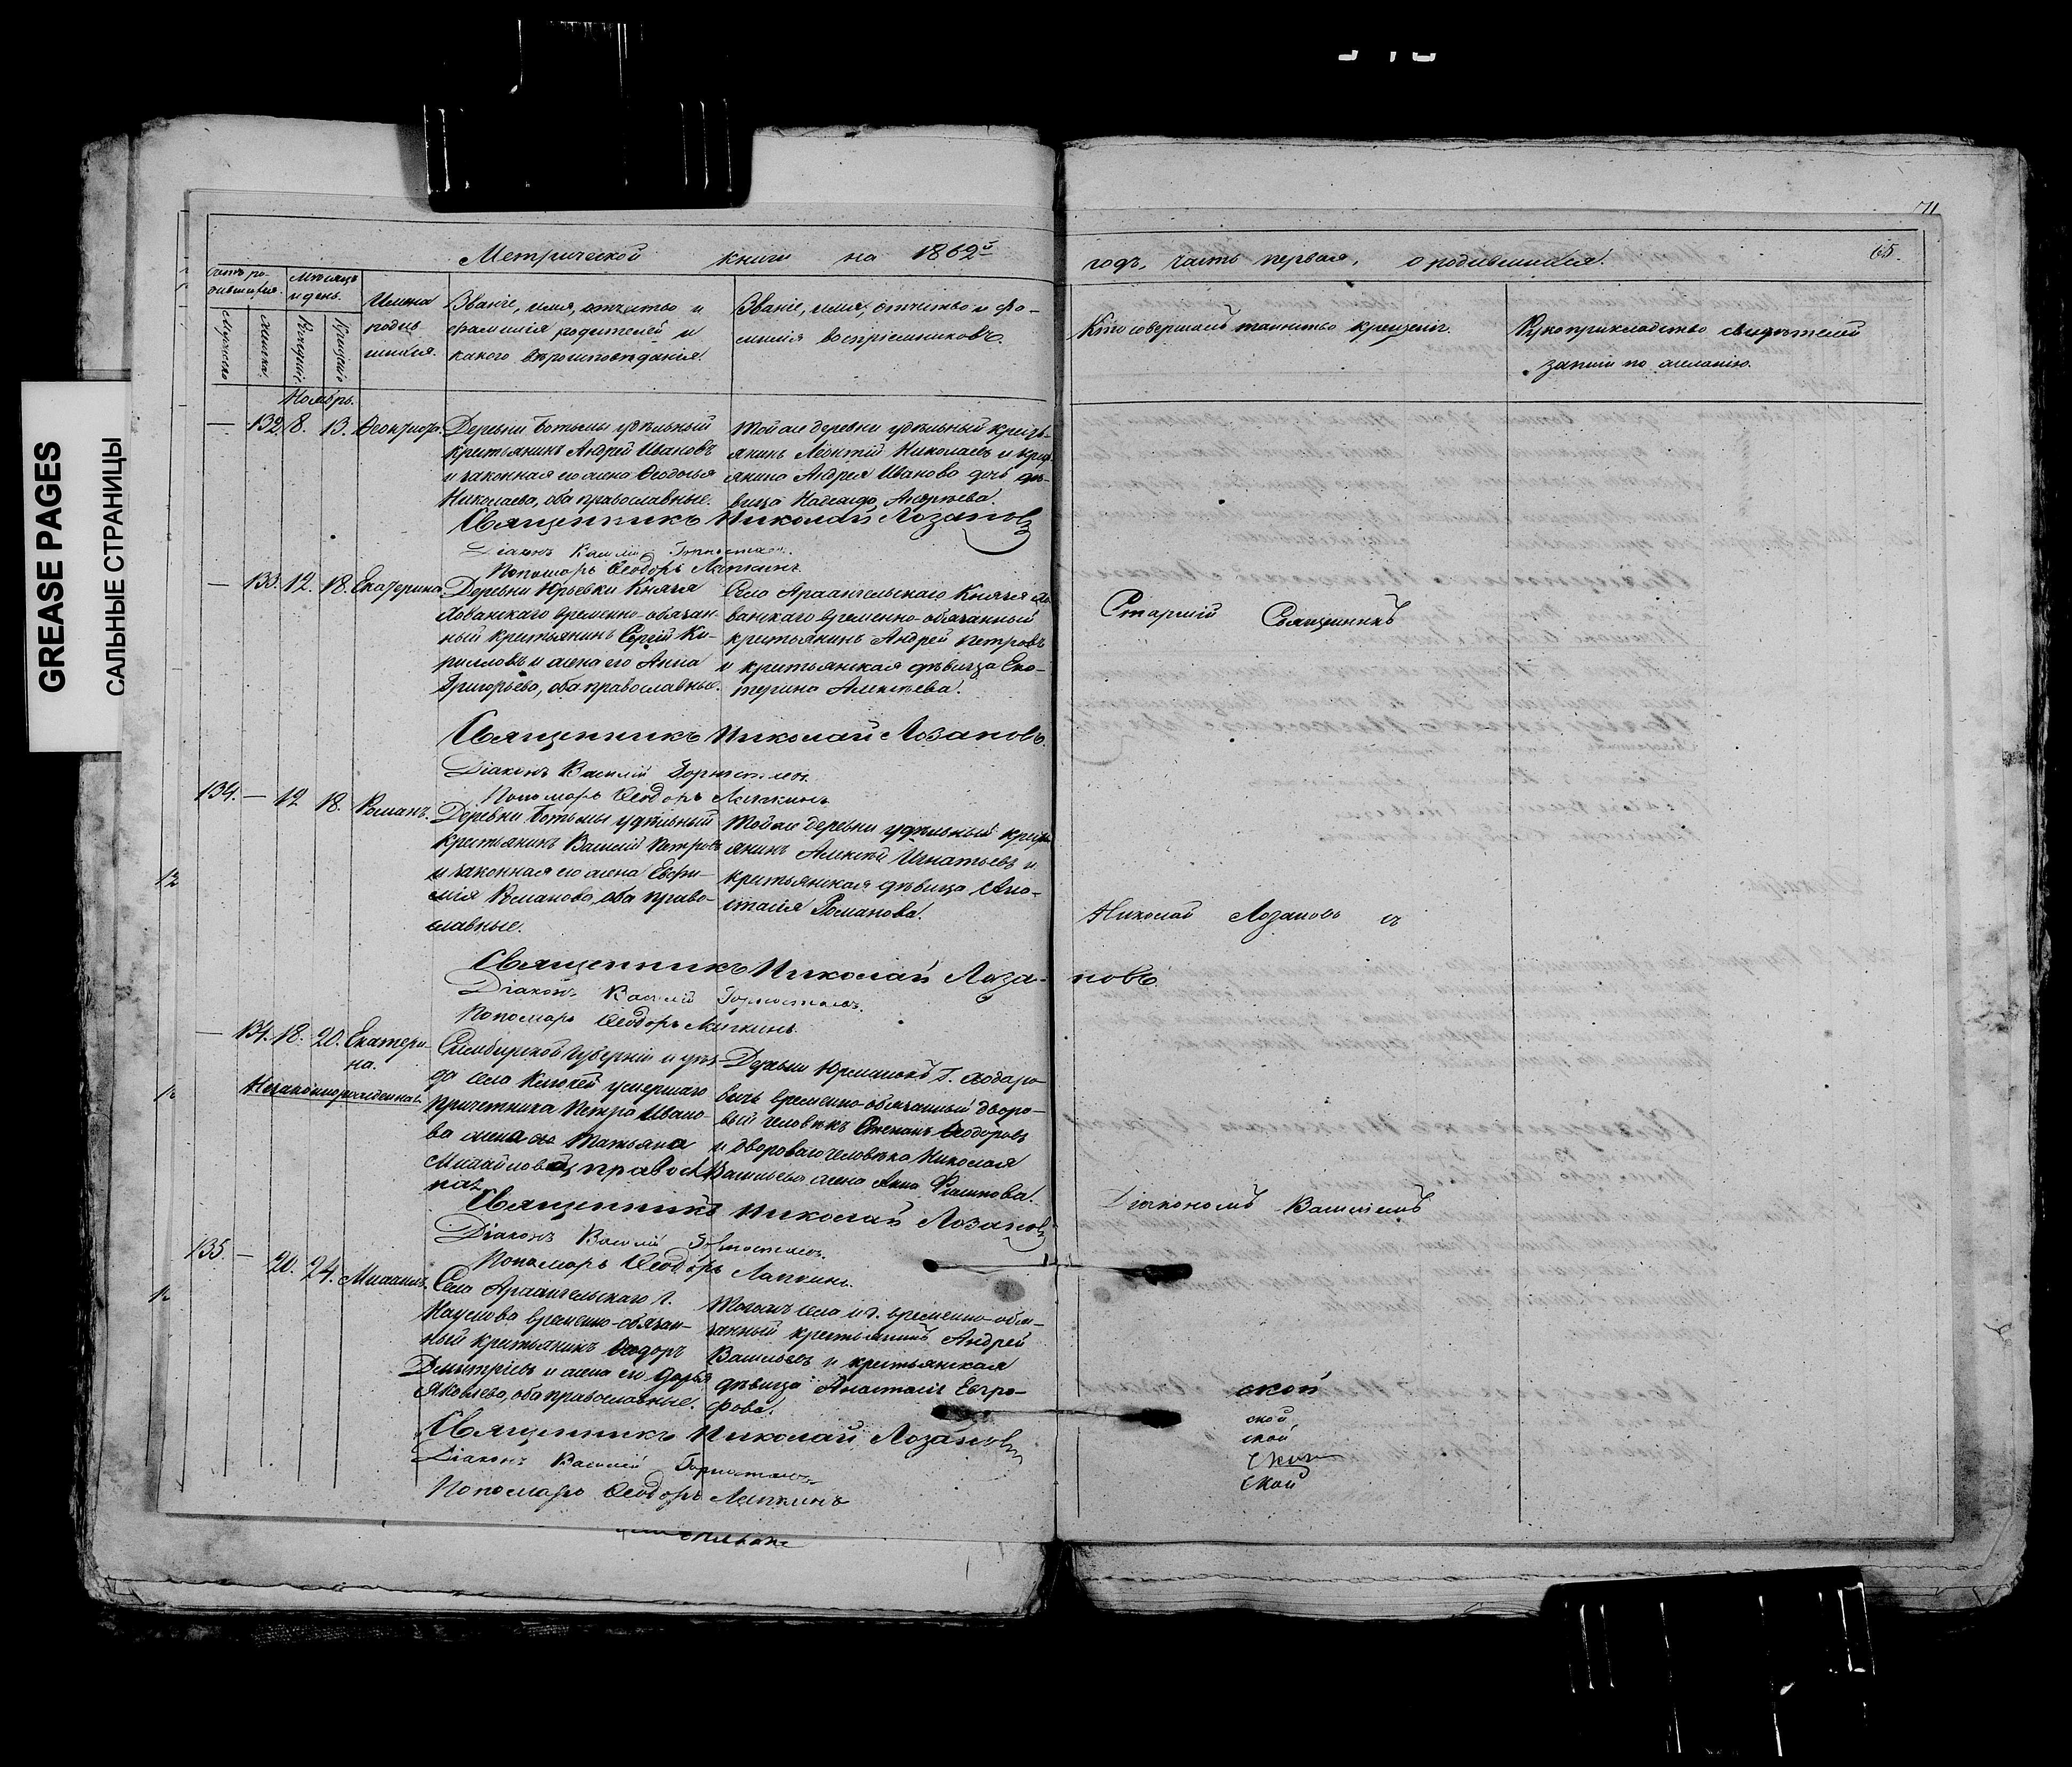 GREASE PAGES
САЛЬНЫЕ СТРАНИЦЫ
71
Метрической книги на 1862й
годъ, часть первая, о родившихся.
65.
Счетъ ро-
дившихся.
Мужеска
Женска
Мѣсяцъ
и день.
Рожденія
Крещенія
Имена
родив-
шихся.
Званіе, имя, отчество и
фамилія родителей и
какого вѣроисповѣданія.
Званіе, имя, отчество и фа-
милія воспріемниковъ.
Кто совершалъ таинство крещенія.
Рукоприкладство свидѣтелей
записи по желанію.
Ноябрь.
— 132. 8. 13. Ѳеоктиста.
Деревни Ботьмы удѣльный
крестьянинъ Андрей Ивановъ
и законная его жена Ѳеодосья
Николаева, оба православные.
Той же деревни удѣльный кресть-
янинъ Леонтій Николаевъ и крест
янина Андрея Иванова дочь дѣ-
вица Надежда Андреева.
Священникъ Николай Лозановъ
Діаконъ Василій Горностаевъ.
Пономарь Ѳеодоръ Лапкинъ.
— 133. 12. 18. Екатерина.
Деревни Юрьевки Князя
Хованскаго временно-обязан-
ный крестьянинъ Сергѣй Ки-
рилловъ и жена его Анна
Григорьева, оба православные.
Села Архангельскаго Князя Хо-
ванскаго временно-обязанный
крестьянинъ Андрей Петровъ
и крестьянская дѣвица Ека-
терина Алексѣева.
Священникъ Николай Лозановъ.
Діаконъ Василій Горностаевъ
Пономарь Ѳеодоръ Лапкинъ
134. — 12 18. Романъ.
Деревни Ботьмы удѣльный
крестьянинъ Василій Петровъ
и законная его жена Евфи-
мія Романова, оба право-
славные.
Той же деревни удѣльный крест
янинъ Алексѣй Игнатьевъ и
крестьянская дѣвица Ана-
стасія Романова.
Священникъ Николай Лоза-новъ
Діаконъ Василій Горностаевъ.
Пономарь Ѳеодоръ Лапкинъ.
— 134. 18. 20. Екатери-
на.
Незаконнорожденная.
Симбирской Губерніи и уѣз-
да села умершаго
причетника Петра Ивано-
ва жена Татьяна
Михайлова, правосл
ная.
Деревни Г.
вича временно-обязанный дворо-
вый человѣкъ Степанъ Ѳеодоровъ
и двороваго человѣка Николая
Васильева жена Анна Филипова.
Священникъ Николай Лозановъ
Діаконъ Василій Горностаевъ.
Пономарь Ѳеодоръ Лапкинъ.
135 — 20. 24. Михаилъ.
Села Архангельскаго Г.
Наумова временно-обязан-
ный крестьянинъ Ѳеодоръ
Дмитріевъ и жена его Дарья
Яковлева, оба православные.
Тогожъ села и г. временно-обя-
занный крестьянинъ Андрей
Васильевъ и крестьянская
дѣвица Анастасія Евгра-
фова.
Священникъ Николай Лозановъ
Діаконъ Василій Горностаевъ
Пономарь Ѳеодоръ Лапкинъ
Старшій Священникъ
Николай Лозановъ съ
Діакономъ Василіемъ
ской
ской
ской
ской
ской